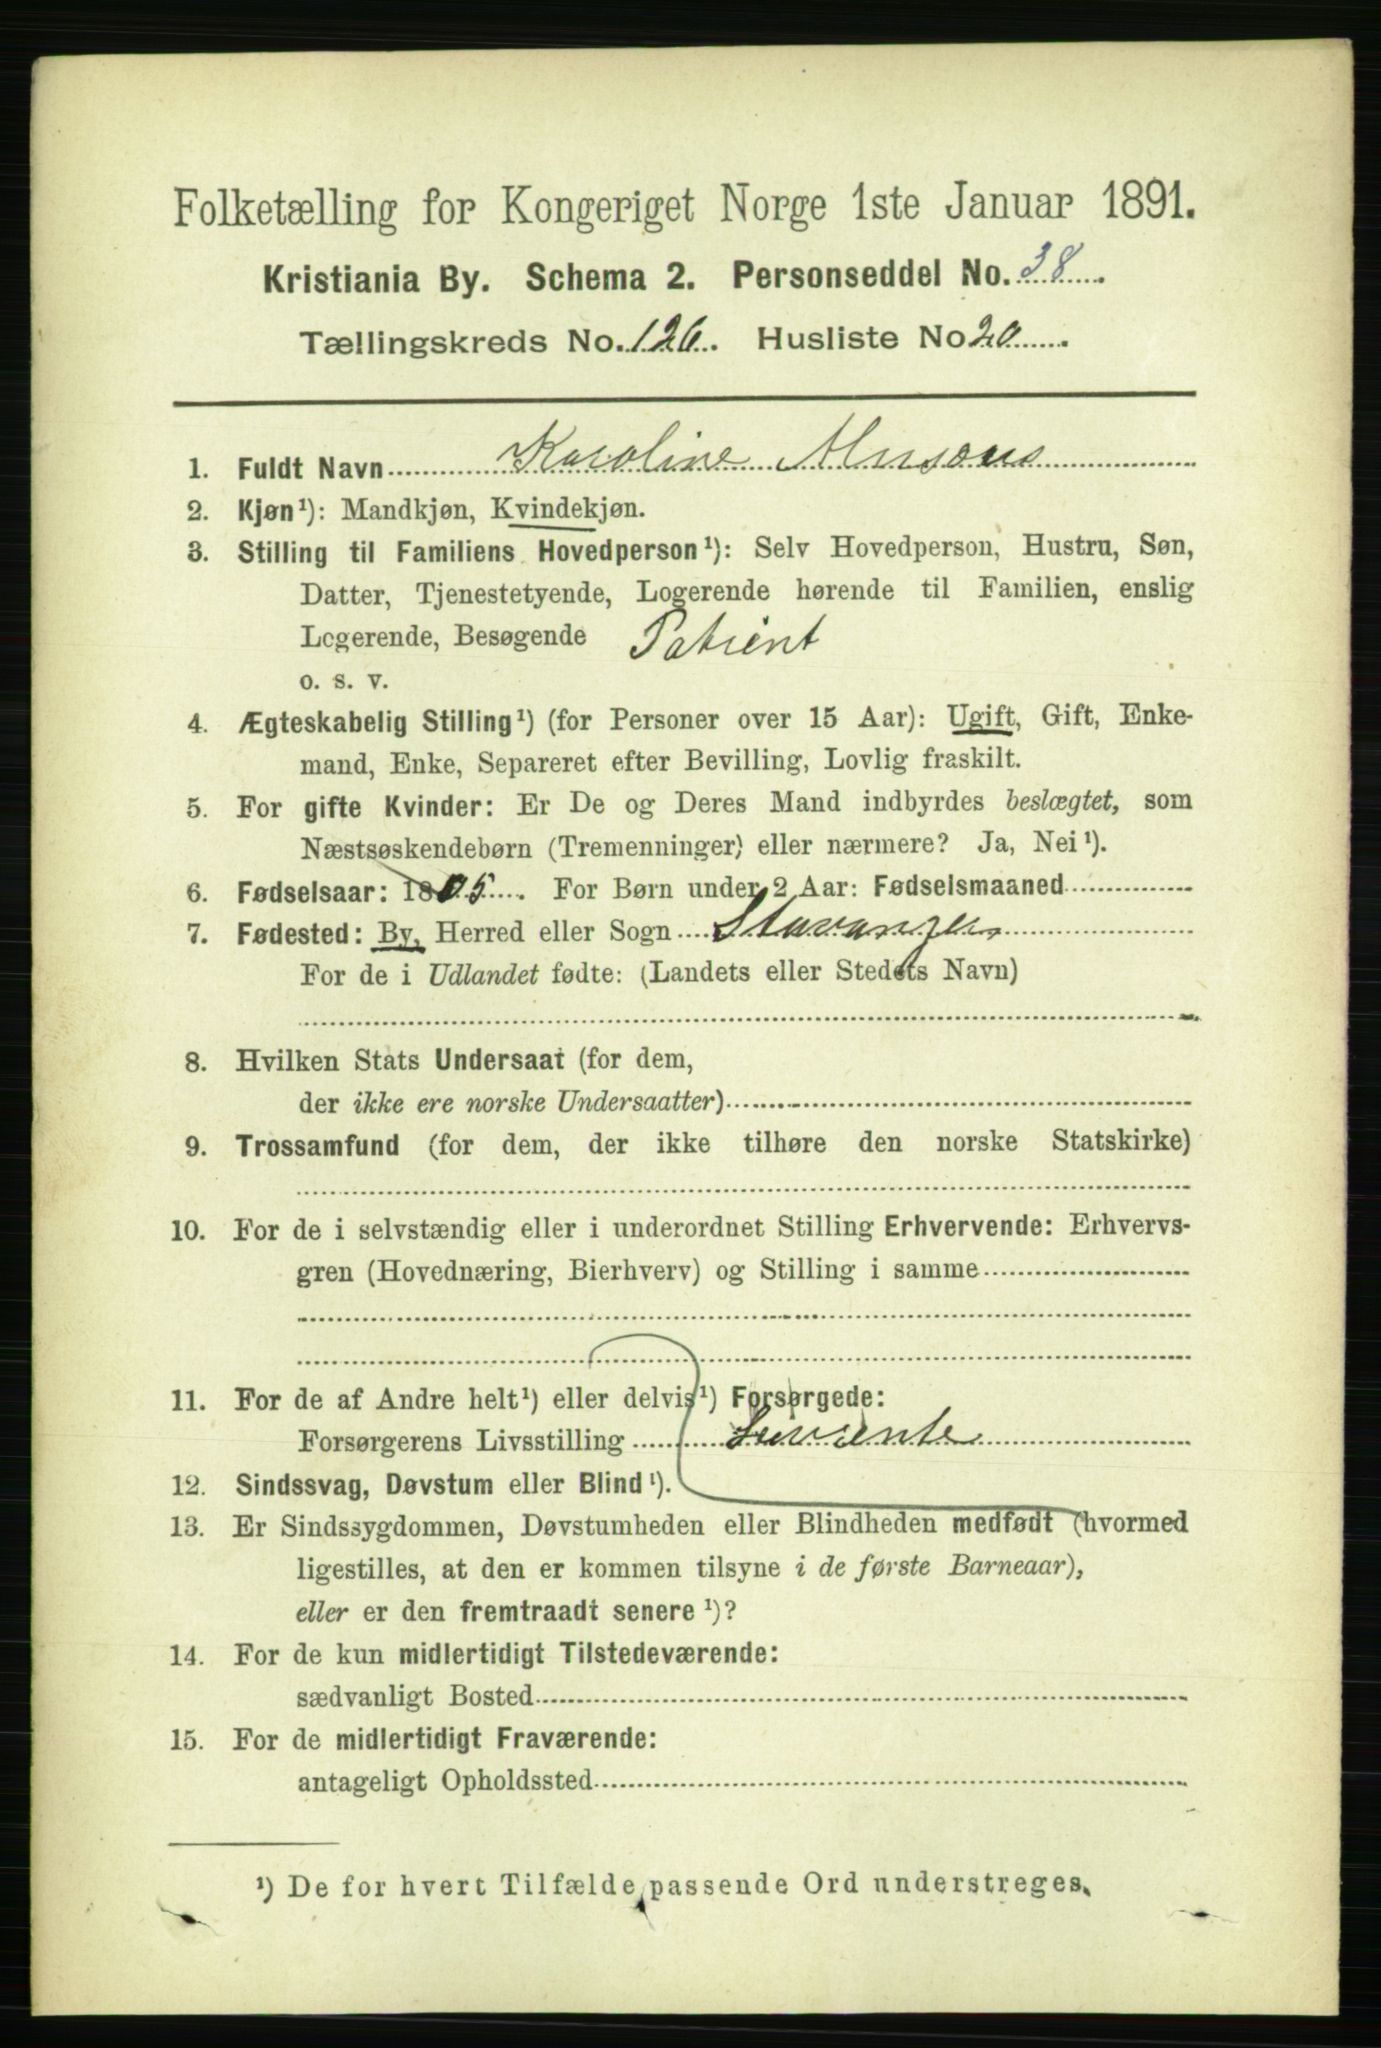 Folketælling for Kongeriget Norge 1ste Januar 1891.
Kristiania By. Schema 2. Personseddel No. 38.
Tællingskreds No. 126. Husliste No 20.
1. Fuldt Navn Karoline
2. Kjøn¹): Mandkjøn, Kvindekjøn.
3. Stilling til Familiens Hovedperson¹): Selv Hovedperson, Hustru, Søn,
Datter, Tjenestetyende, Logerende hørende til Familien, enslig
Logerende, Besøgende Patient
o. s. v.
4. Ægteskabelig Stilling¹) (for Personer over 15 Aar): Ugift, Gift, Enke-
mand, Enke, Separeret efter Bevilling, Lovlig fraskilt.
5. For gifte Kvinder: Er De og Deres Mand indbyrdes beslægtet, som
Næstsøskendebørn (Tremenninger) eller nærmere? Ja, Nei¹).
6. Fødselsaar: 1805. For Børn under 2 Aar: Fødselsmaaned
7. Fødested: By, Herred eller Sogn Stavanger
For de i Udlandet fødte: (Landets eller Stedets Navn)
8. Hvilken Stats Undersaat (for dem,
der ikke ere norske Undersaatter)
9. Trossamfund (for dem, der ikke tilhøre den norske Statskirke)
10. For de i selvstændig eller i underordnet Stilling Erhvervende: Erhvervs-
gren (Hovednæring, Bierhverv) og Stilling i samme
11. For de af Andre helt¹) eller delvis¹) Forsørgede:
Forsørgerens Livsstilling
12. Sindssvag, Døvstum eller Blind¹).
13. Er Sindssygdommen, Døvstumheden eller Blindheden medfødt (hvormed
ligestilles, at den er kommen tilsyne i de første Barneaar),
eller er den fremtraadt senere¹)?
14. For de kun midlertidigt Tilstedeværende:
sædvanligt Bosted
15. For de midlertidigt Fraværende:
antageligt Opholdssted
¹) De for hvert Tilfælde passende Ord understreges.